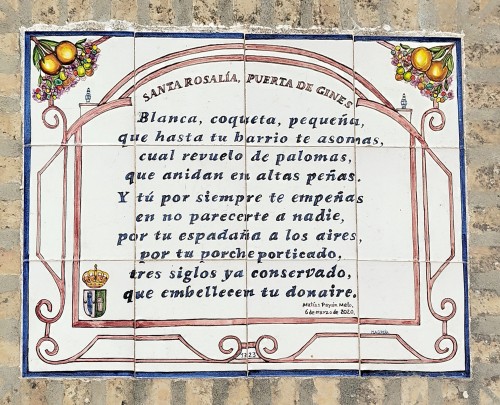 SANTA ROSALÍA, PUERTA DE GINES
Blanca, coqueta, pequeña,
que hasta tu barrio te asomas,
cual revuelo de palomas,
que anidan en altas peñas.
Y tú por siempre te empeñas
en no parecerte a nadie,
por tu espadaña a los aires,
por tu porche porticado,
tres siglos ya conservado,
que embellecen tu donaire.
Matías Payán Melo,
6 de marzo de 2020,
1723